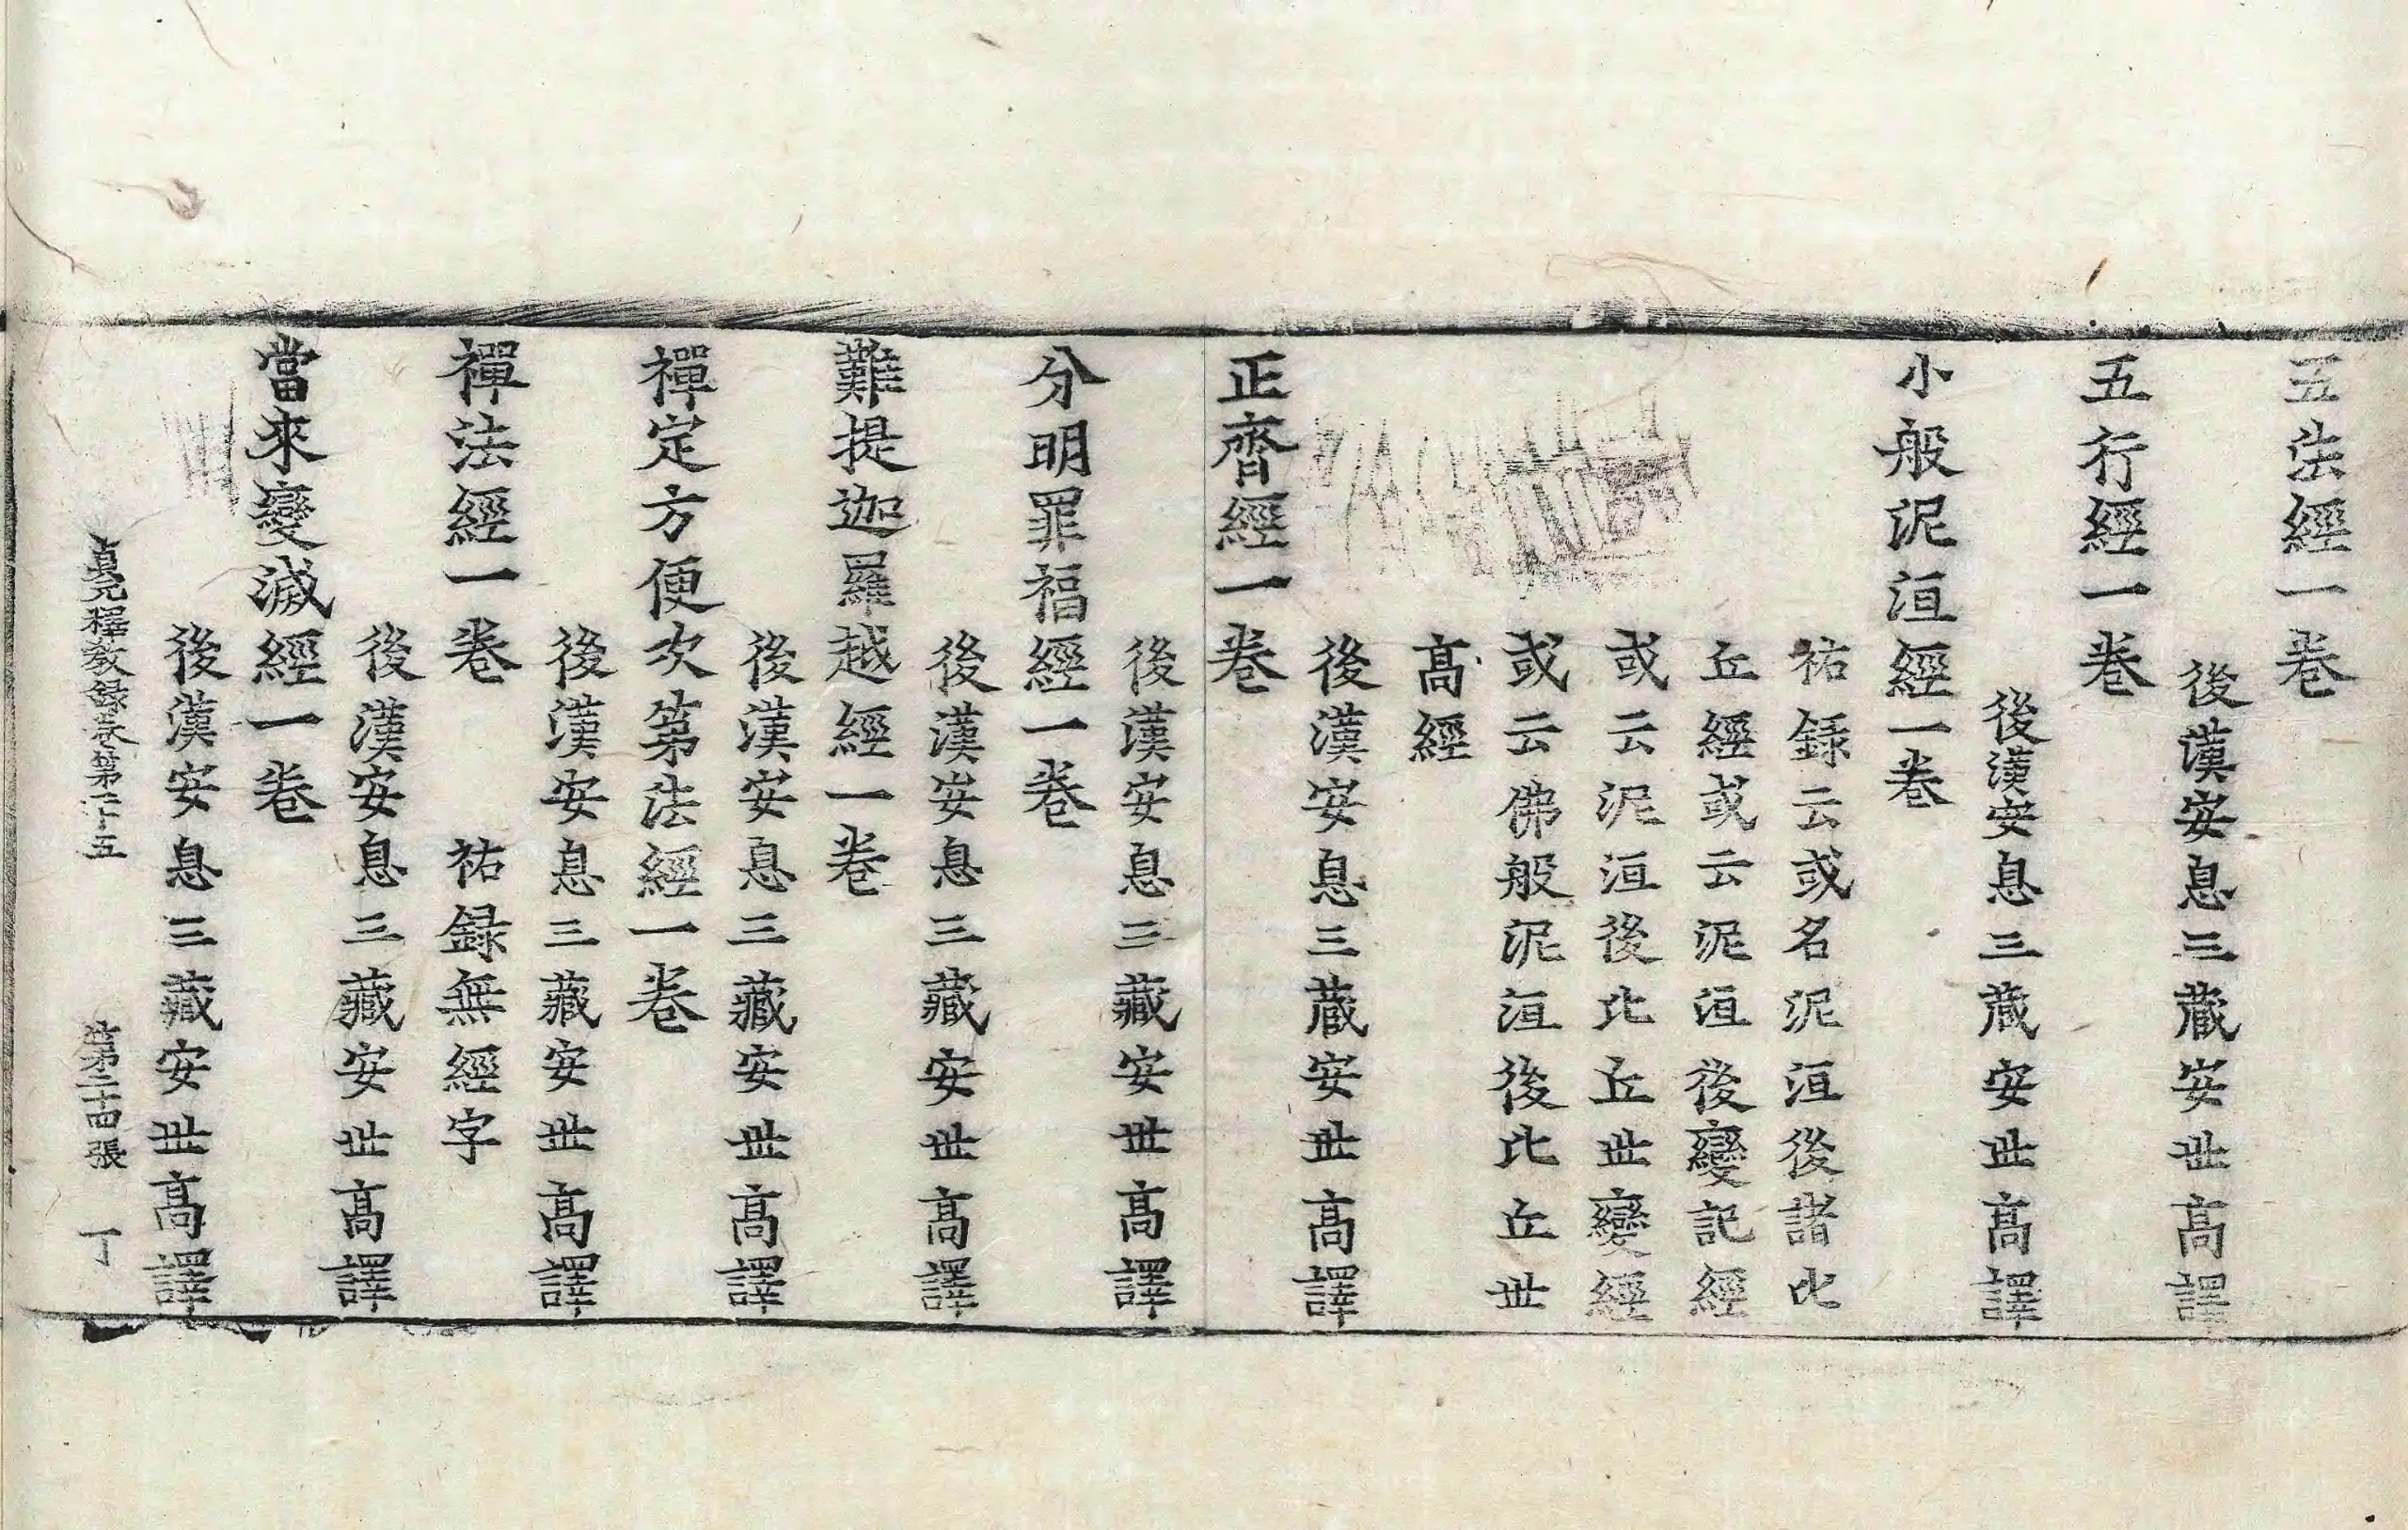 五法經一卷
後漢安息三藏安世高譯
五行經一卷
後漢安息三藏安世高譯
小般泥洹經一卷
祐録云或名泥洹後諸比
丘經或云泥洹後變記經
或云泥洹後比丘世變經
或云佛般泥洹後比丘世
髙經
後漢安息三藏安世高譯
正齊經一卷
後漢安息三藏安世高譯
分明罪福經一卷
後漢安息三藏安世高譯
難提迦羅越經一卷
後漢安息三藏安世高譯
禪定方便次第法經一卷
後漢安息三藏安世高譯
禪法經一卷 祐録無經字
後漢安息三藏安世高譯
當來變滅經一卷
後漢安息三藏安世高譯
貞元釋教録卷第二十五 第二十四張 丁